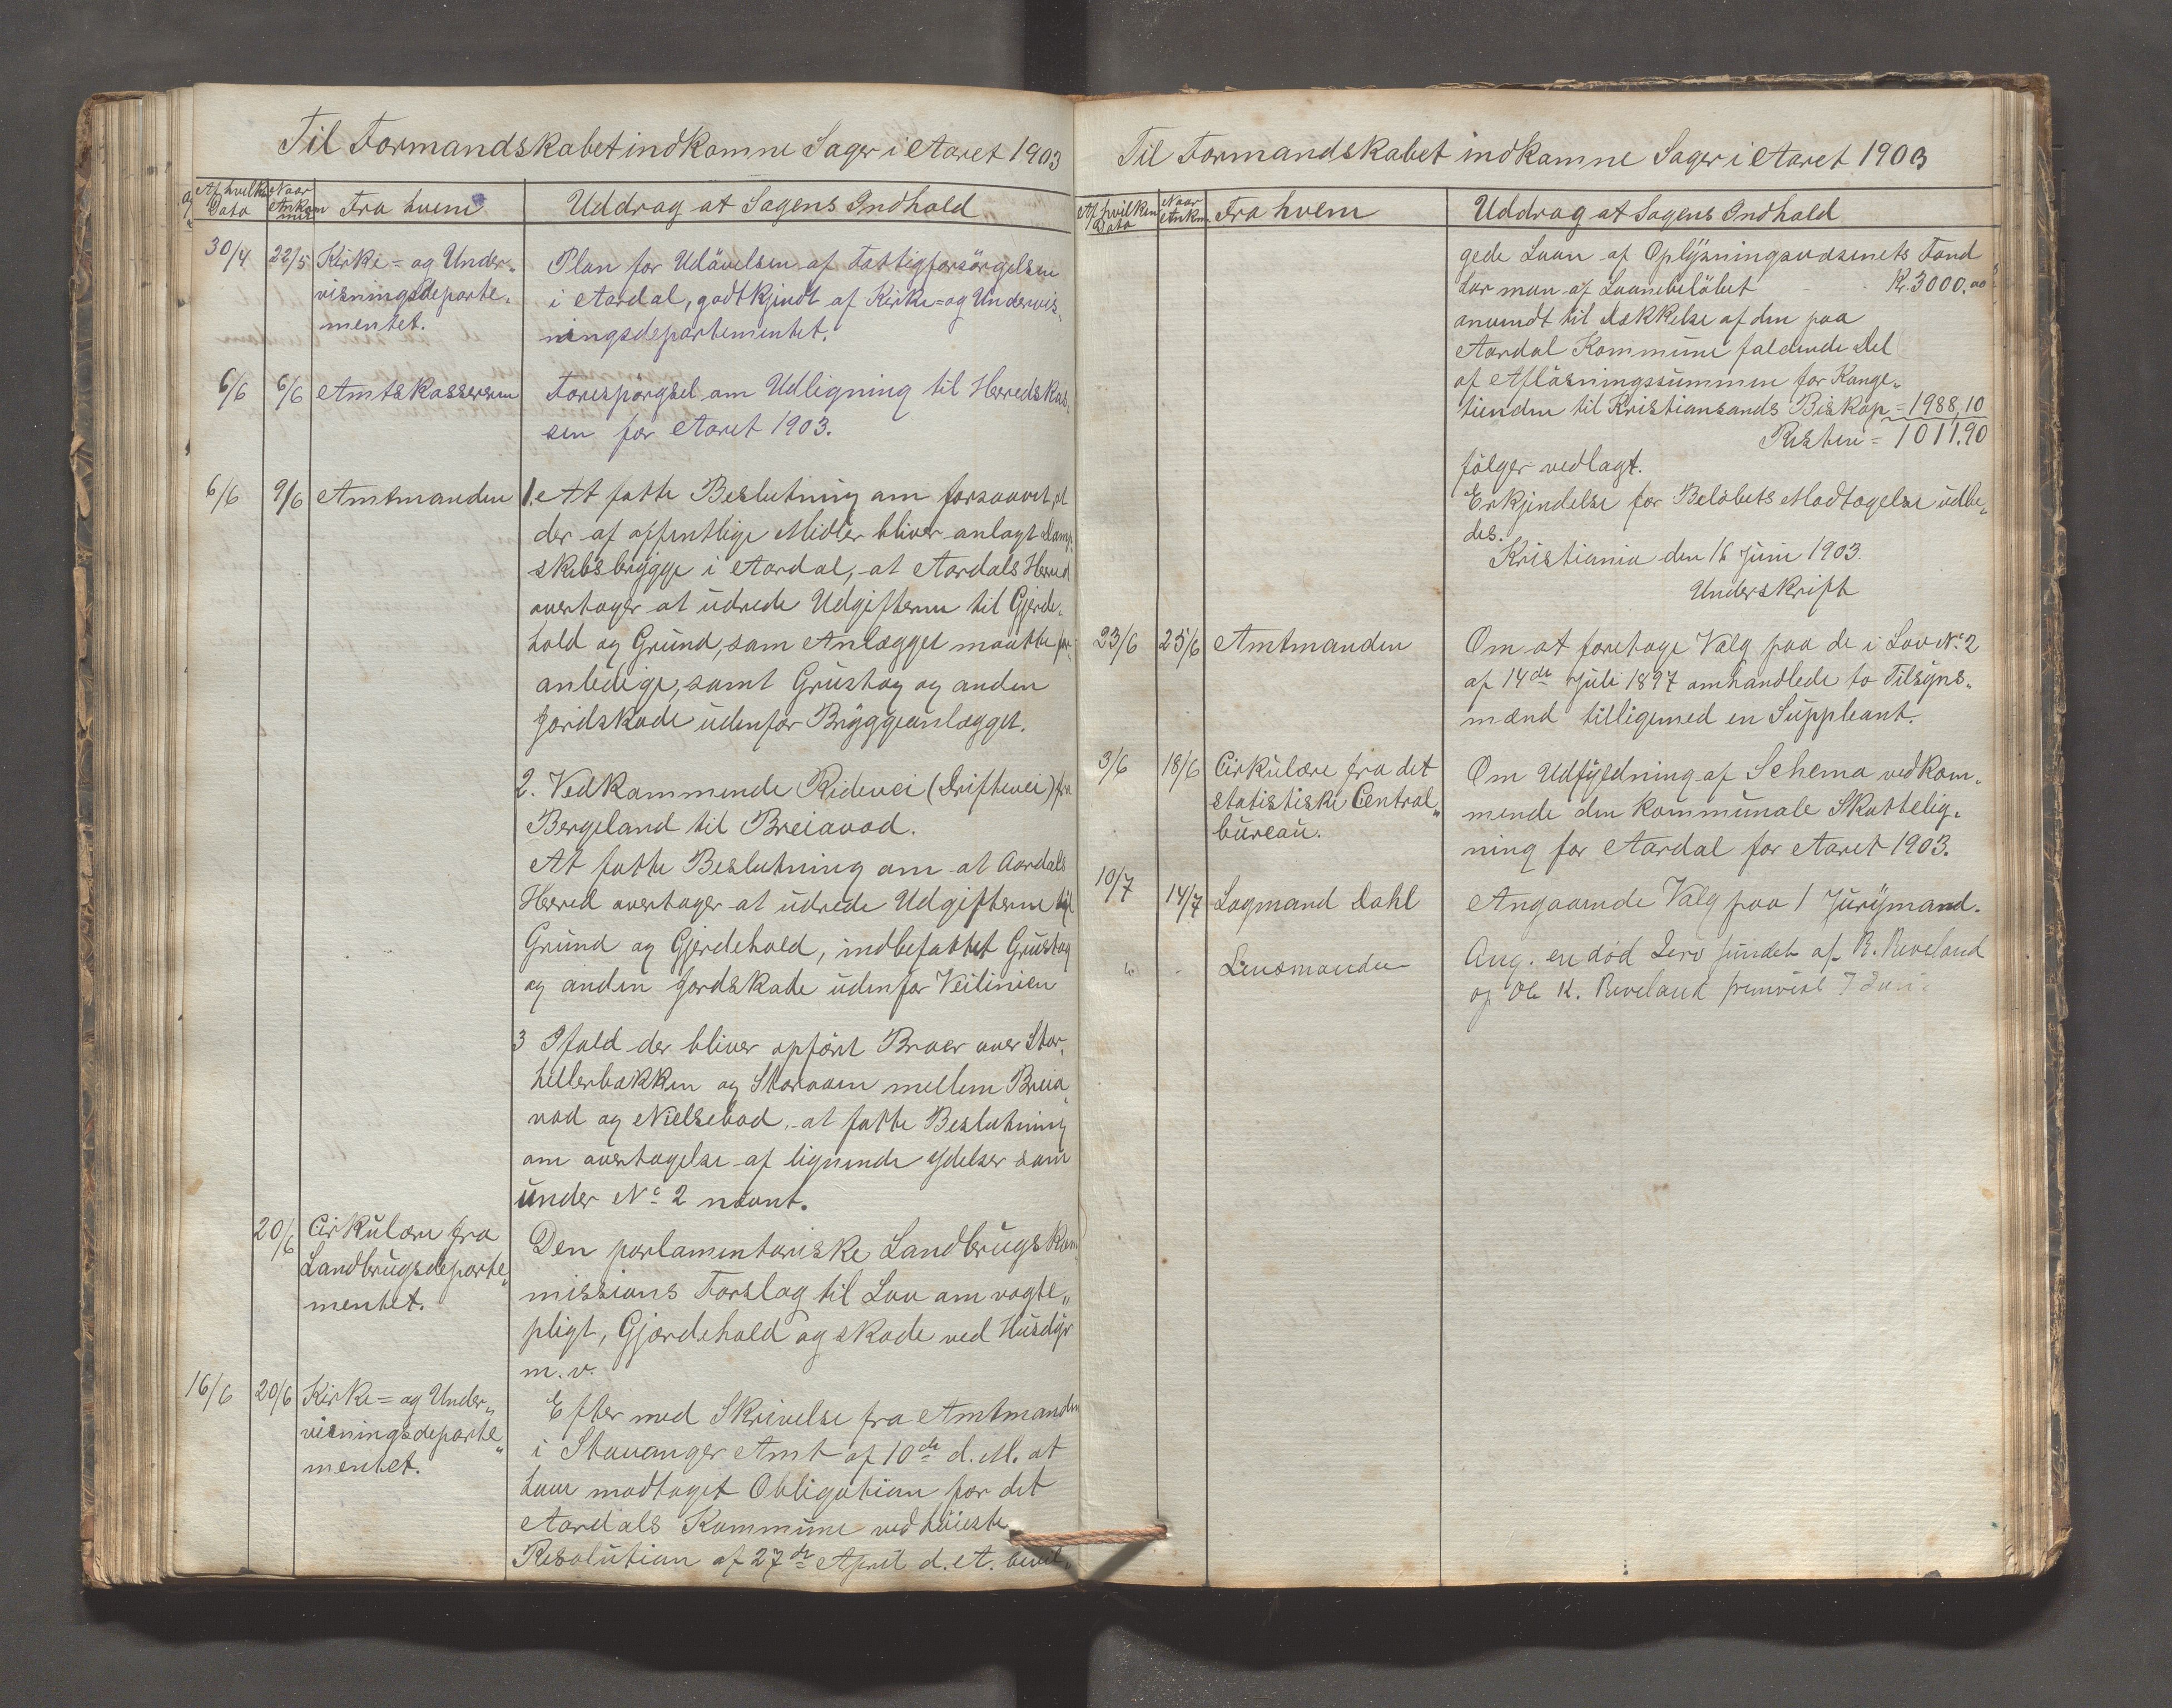 Til Formandskabet indkomne Sager i Aaret 1903
Af hvilken Dato
Naar Ankommet
Fra hvem
Uddrag at Sagens Indhold
30/4 22/5 Kirke= og Under„
visningsdeparte„
mentet.
Plan for Udövelsen af Fattigforsörgelsen
i Aardal, godtkjendt af Kirke= og Undervis„
ningsdepartementet.
6/6 6/6 Amtskassereren
Forespörgsel om Udligning til Herredskas„
sen for Aaret 1903.
6/6 9/6 Amtmanden
1. At fatte Beslutning om forsaavit, at
der af offentlige Midler bliver anlagt Damp„
skibsbrygge i Aardal, at Aardals Herred
overtager at udrede Udgifterne til Gjerde„
hold og Grund, som Anlægget maatte for„
anledige, samt Grustag og anden
Jordskade udenfor Bryggeanlægget.
2. Vedkommende Ridevei (Driftevei) fra
Bergeland til Breiavad.
At fatte Beslutning om at Aardals
Herred overtager at udrede Udgifterne til
Grund og Gjerdehold, indbefattet Grustag
og anden Jordskade udenfor Veilinien
3 Ifald der bliver opfört Broer over Stor„
hellerbækken og Storaaen mellem Breia„
vad og Nielsebod, at fatte Beslutning
om overtagelse af lignende ydelser som
under No 2 nævnt.
20/6 Cirkulære fra
Landbrugsdeparte„
mentet.
Den parlamentariske Landbrugskom„
missions Forslag til Lov om vogte„
pligt, Gjærdehold og skade ved Husdyr
m. v.
16/6 20/6 Kirke= og Under„
visningsdeparte„
mentet.
Efter med Skrivelse fra Amtmanden
i Stavanger Amt af 10de d. M. at
have modtaget Obligation for det
Aardals Kommune ved höieste
Resolution af 27de April d. A. bevil„
Til Formandskabet indkomne Sager i Aaret 1903
Af hvilken Dato
Naar Ankm.
Fra hvem
Uddrag at Sagens Indhold
gede Laan af Oplysningsvæsenets Fond
har man af Laanebelöbet Kr. 3000.00
anvendt til dækkelse af den paa
Aardal Kommune faldende Del
af Aflösningssummen for Konge„
tienden til Kristiansands Biskop = 1988,10
Resten = 1011.90
fölger vedlagt.
Erkjendelse for Belöbets Modtagelse udbe„
des.
Kristiania den 16 Juni 1903.
Underskrift
23/6 25/6 Amtmanden
Om at foretage Valg paa de i Lov No 2
af 14de Juli 1897 omhandlede to Tilsyns„
mænd tilligemed en Suppleant.
3/6 18/6 Cirkulære fra det
statistiske Central„
bureau.
Om Udfyldning af Schema vedkom„
mende den kommunale Skattelig„
ning for Aardal for Aaret 1903.
10/7 14/7 Lagmand Dahl
Angaaende Valg paa 1 Jurymand.
Lensmanden
Ang. en död fundet af R. Riveland
og Ole K. Riveland